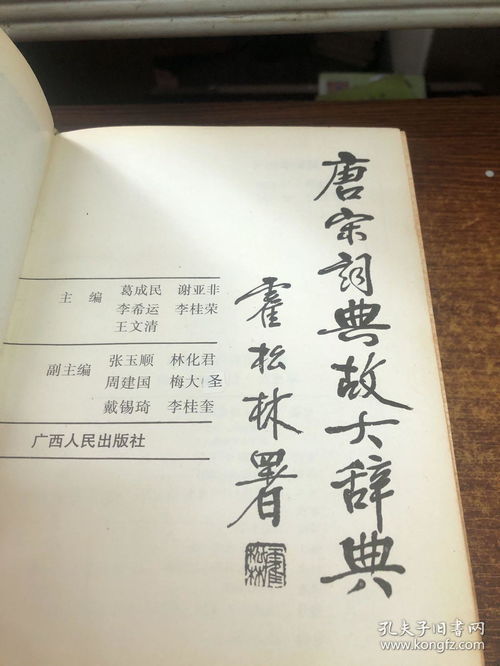 唐宋词典故大辞典
霍松林署
霍松林
主编 葛成民 谢亚非
李希运 李桂荣
王文清
副主编 张玉顺 林化君
周建国 梅大圣
戴锡琦 李桂奎
广西人民出版社
孔夫子旧书网
www.kongfz.com